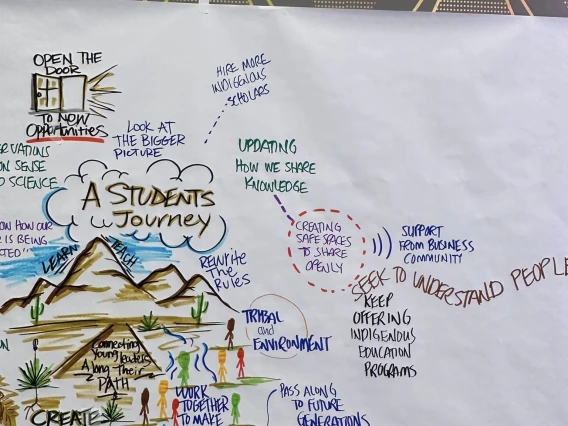 OPEN THE
DOOR
TO NEW
Opportunities
HIRE MORE
INDIGENOUS
SCHOLARS
LOOK AT
THE BIGGER
PICTURE
ON SENSE
SCIENCE
UPDATING
HOW WE SHARE
KNOWLEDGE
A STUDENTS
Journey
HOW OUR
IS BEING
LEARN
TEACH
REWRITE
THE
RULES
CREATING
SAFE SPACES
TO SHARE
OPENLY
SUPPORT
FROM BUSINESS
COMMUNITY
SEEK TO UNDERSTAND PEOPLE
KEEP
OFFERING
INDIGENOUS
EDUCATION
PROGRAMS
TRIBAL
and
ENVIRONMENT
Connecting
Young leaders
Along Their
PATH
WORK
TOGETHER
TO MAKE
PASS ALONG
TO FUTURE
GENERATIONS
CREATE